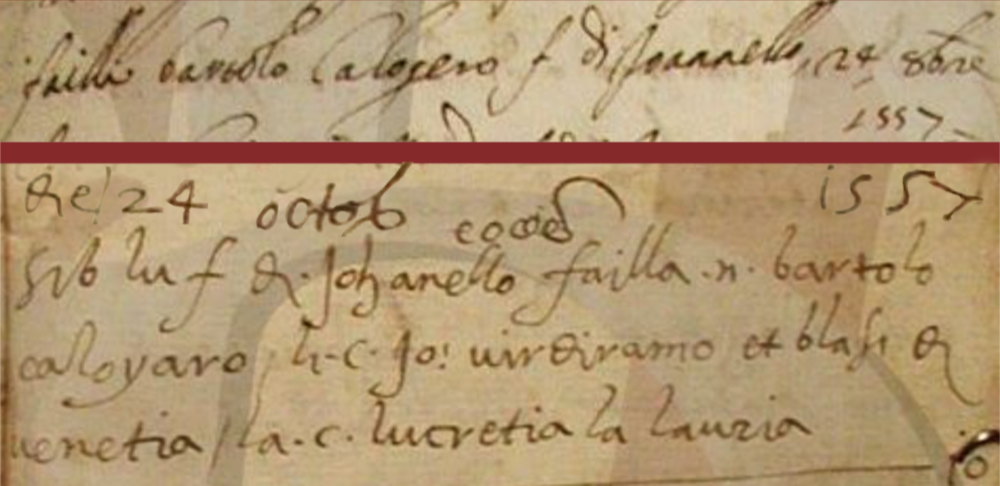 failli bartolo Calogero f di Joannello, 24 8bre
1557
die 24 octob eodem 1557
Sib lu f di Johanello failla .n. bartolo
caloyaro li.c. Jo: virdiramo et blasi di
venetia la.c. lucretia la lauria